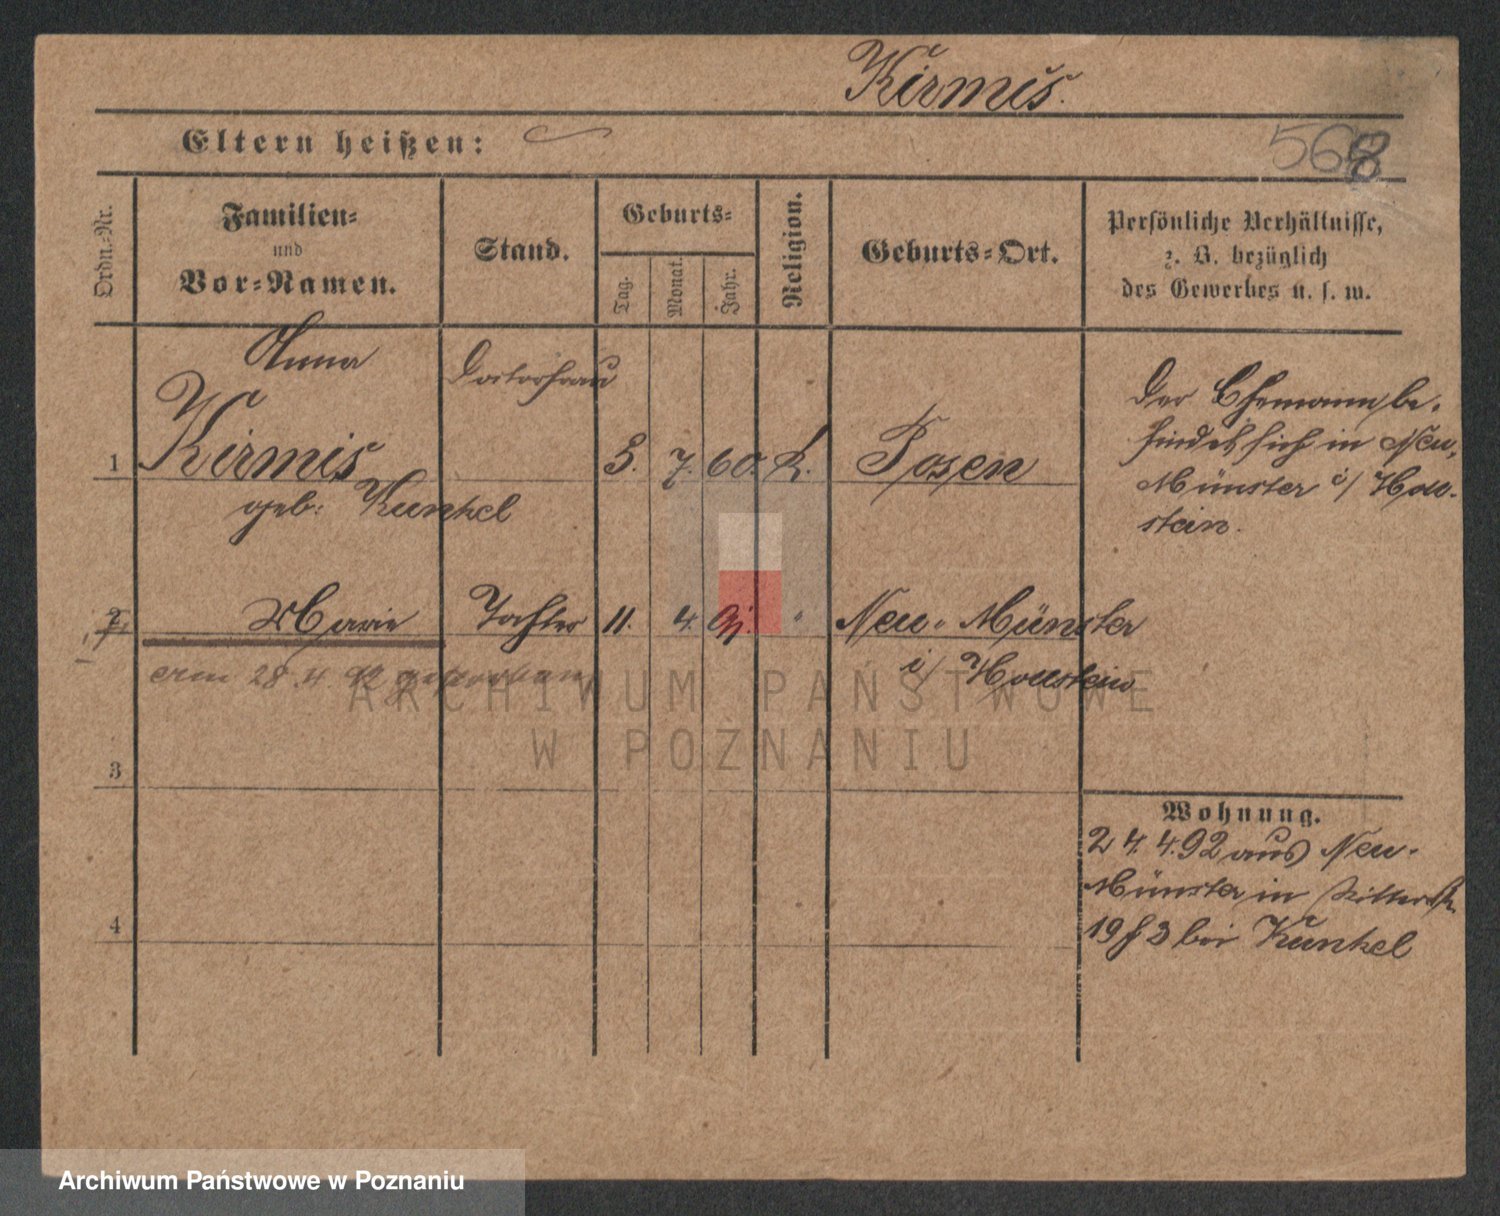 Kirmis.
Eltern heißen:
568
Ordn.-Nr.
Familien-
und
Vor-Namen.
Stand.
Geburts-
Tag.
Monat.
Jahr.
Religion.
Geburts-Ort.
Persönliche Verhältnisse,
z. B. bezüglich
des Gewerbes u. s. w.
Anna
Doctorfrau
1 Kirmis 3. 7. 60. Posen
geb: Kunkel
Der Ehemann be-
findet sich in Neu-
Münster i/ Hol-
stein.
2 Marie Tochter 11. 4. 91. " Neu-Münster
i/ Hollstein
am 28. 4. 92 gestorben
3
4
Wohnung.
24. 4. 92 aus Neu-
Münster in Ritterstr.
19 bei Kunkel
ARCHIWUM PAŃSTWOWE
W POZNANIU
Archiwum Państwowe w Poznaniu